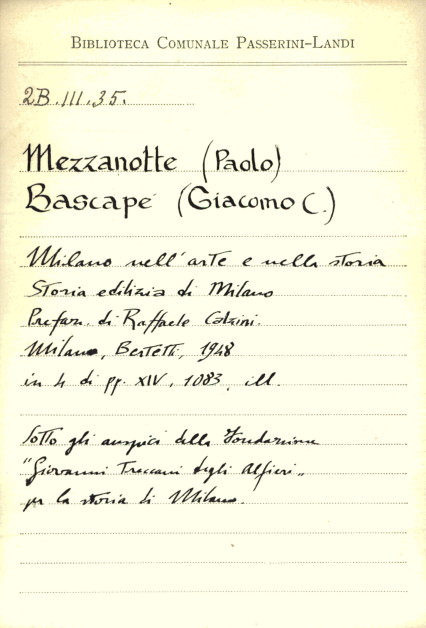 BIBLIOTECA COMUNALE PASSERINI-LANDI
2B.III.35.
Mezzanotte (Paolo)
Bascapé (Giacomo C.)
Milano nell'arte e nella storia
Storia edilizia di Milano
Prefaz. di Raffaele Calzini.
Milano, Bestetti, 1948
in 4 di pp. XIV, 1083, ill.
Sotto gli auspici della Fondazione
"Giovanni Treccani degli Alfieri„
per la storia di Milano.